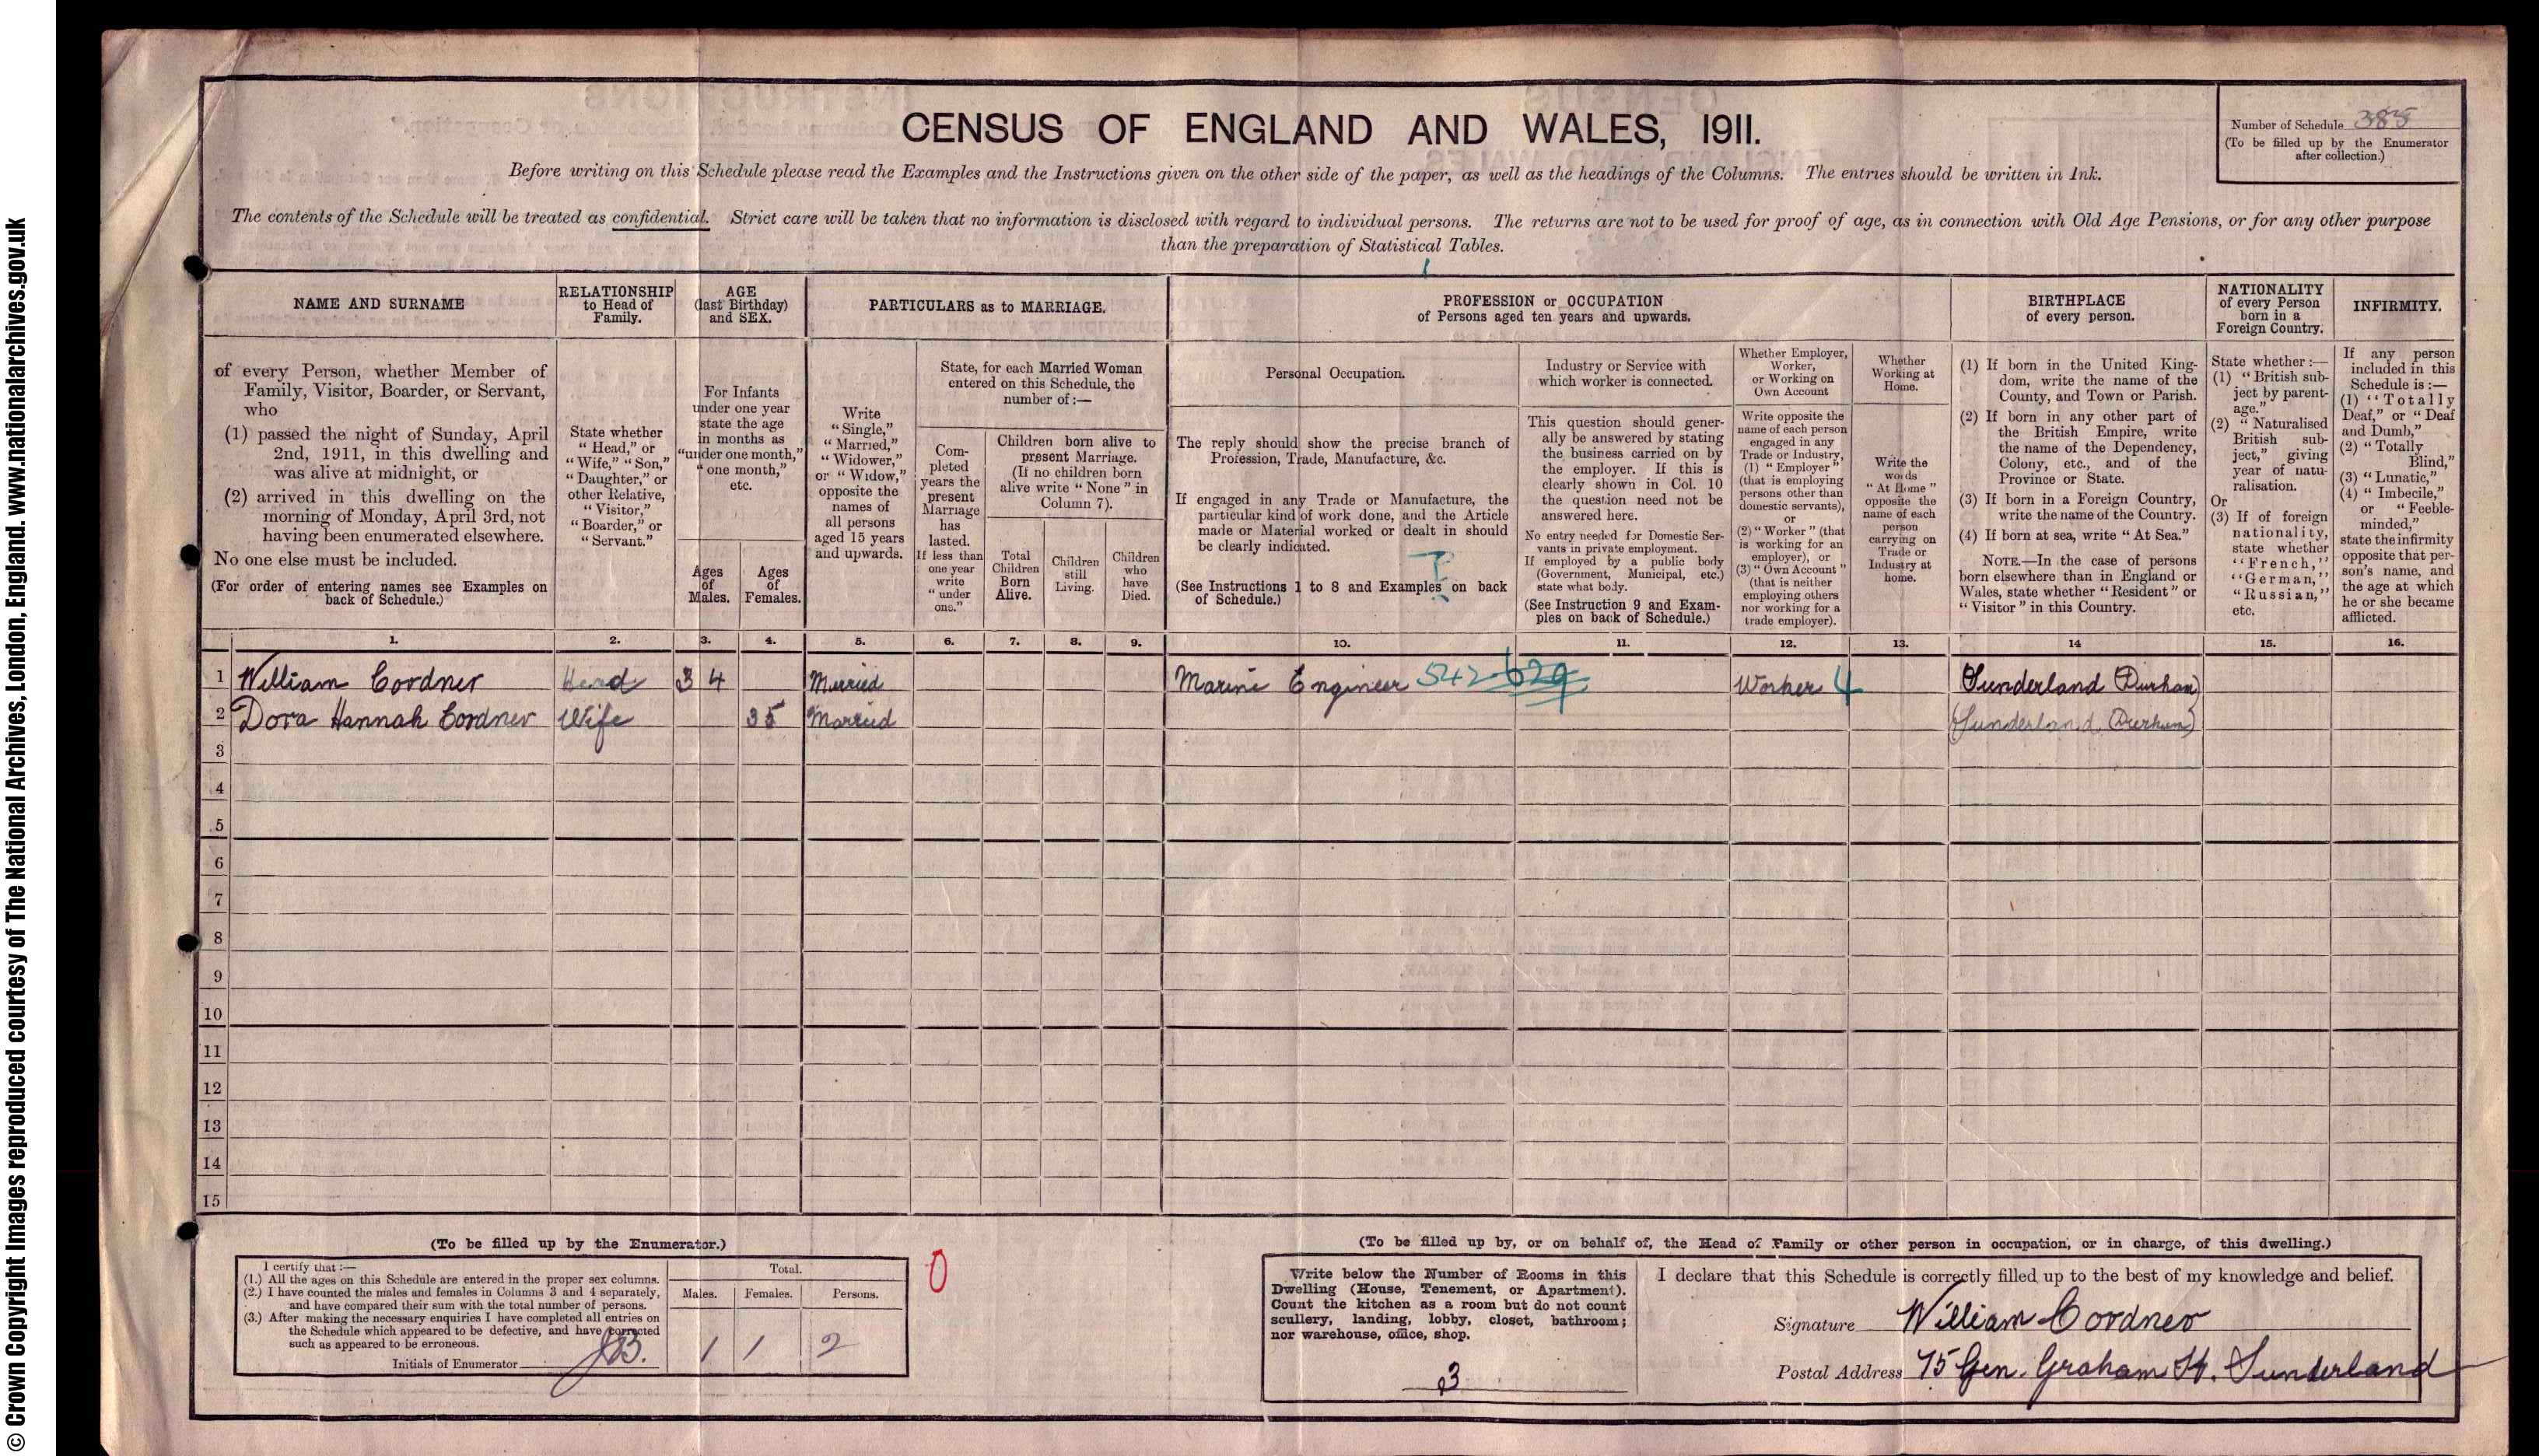 © Crown Copyright Images reproduced courtesy of The National Archives, London, England. www.nationalarchives.gov.uk
CENSUS OF ENGLAND AND WALES, 1911.
Number of Schedule 385
(To be filled up by the Enumerator
after collection.)
Before writing on this Schedule please read the Examples and the Instructions given on the other side of the paper, as well as the headings of the Columns. The entries should be written in Ink.
The contents of the Schedule will be treated as confidential. Strict care will be taken that no information is disclosed with regard to individual persons. The returns are not to be used for proof of age, as in connection with Old Age Pensions, or for any other purpose
than the preparation of Statistical Tables.
NAME AND SURNAME
of every Person, whether Member of
Family, Visitor, Boarder, or Servant,
who
(1) passed the night of Sunday, April
2nd, 1911, in this dwelling and
was alive at midnight, or
(2) arrived in this dwelling on the
morning of Monday, April 3rd, not
having been enumerated elsewhere.
No one else must be included.
(For order of entering names see Examples on
back of Schedule.)
RELATIONSHIP
to Head of
Family.
State whether
"Head," or
"Wife," "Son,"
"Daughter," or
other Relative,
"Visitor,"
"Boarder," or
"Servant."
AGE
(last Birthday)
and SEX.
For Infants
under one year
state the age
in months as
"under one month,"
"one month,"
etc.
Ages
of
Males.
Ages
of
Females.
PARTICULARS as to MARRIAGE.
Write
"Single,"
"Married,"
"Widower,"
or "Widow,"
opposite the
names of
all persons
aged 15 years
and upwards.
State, for each Married Woman
entered on this Schedule, the
number of :—
Com-
pleted
years the
present
Marriage
has
lasted.
If less than
one year
write
"under
one."
Children born alive to
present Marriage.
(If no children born
alive write "None" in
Column 7).
Total
Children
Born
Alive.
Children
still
Living.
Children
who
have
Died.
PROFESSION or OCCUPATION
of Persons aged ten years and upwards.
Personal Occupation.
The reply should show the precise branch of
Profession, Trade, Manufacture, &c.
If engaged in any Trade or Manufacture, the
particular kind of work done, and the Article
made or Material worked or dealt in should
be clearly indicated.
(See Instructions 1 to 8 and Examples on back
of Schedule.)
Industry or Service with
which worker is connected.
This question should gener-
ally be answered by stating
the business carried on by
the employer. If this is
clearly shown in Col. 10
the question need not be
answered here.
No entry needed for Domestic Ser-
vants in private employment.
If employed by a public body
(Government, Municipal, etc.)
state what body.
(See Instruction 9 and Exam-
ples on back of Schedule.)
Whether Employer,
Worker,
or Working on
Own Account
Write opposite the
name of each person
engaged in any
Trade or Industry,
(1) "Employer"
(that is employing
persons other than
domestic servants),
or
(2) "Worker" (that
is working for an
employer), or
(3) "Own Account"
(that is neither
employing others
nor working for a
trade employer).
Whether
Working at
Home.
Write the
words
"At Home"
opposite the
name of each
person
carrying on
Trade or
Industry at
home.
BIRTHPLACE
of every person.
(1) If born in the United King-
dom, write the name of the
County, and Town or Parish.
(2) If born in any other part of
the British Empire, write
the name of the Dependency,
Colony, etc., and of the
Province or State.
(3) If born in a Foreign Country,
write the name of the Country.
(4) If born at sea, write "At Sea."
NOTE.—In the case of persons
born elsewhere than in England or
Wales, state whether "Resident" or
"Visitor" in this Country.
NATIONALITY
of every Person
born in a
Foreign Country.
State whether :—
(1) "British sub-
ject by parent-
age."
(2) "Naturalised
British sub-
ject," giving
year of natu-
ralisation.
Or
(3) If of foreign
nationality,
state whether
"French,"
"German,"
"Russian,"
etc.
INFIRMITY.
If any person
included in this
Schedule is :—
(1) "Totally
Deaf," or "Deaf
and Dumb,"
(2) "Totally
Blind,"
(3) "Lunatic,"
(4) "Imbecile,"
or "Feeble-
minded,"
state the infirmity
opposite that per-
son's name, and
the age at which
he or she became
afflicted.
1. 2. 3. 4. 5. 6. 7. 8. 9. 10. 11. 12. 13. 14 15. 16.
1 William Cordner Head 34 Married Marine Engineer 542 629 Worker 4 Sunderland Durham
2 Dora Hannah Cordner Wife 35 Married Sunderland Durham
3
4
5
6
7
8
9
10
11
12
13
14
15
(To be filled up by the Enumerator.)
I certify that :—
(1.) All the ages on this Schedule are entered in the proper sex columns.
(2.) I have counted the males and females in Columns 3 and 4 separately,
and have compared their sum with the total number of persons.
(3.) After making the necessary enquiries I have completed all entries on
the Schedule which appeared to be defective, and have corrected
such as appeared to be erroneous.
Initials of Enumerator
Total.
Males. Females. Persons.
1 1 2
0
(To be filled up by, or on behalf of, the Head of Family or other person in occupation, or in charge, of this dwelling.)
Write below the Number of Rooms in this
Dwelling (House, Tenement, or Apartment).
Count the kitchen as a room but do not count
scullery, landing, lobby, closet, bathroom;
nor warehouse, office, shop.
3
I declare that this Schedule is correctly filled up to the best of my knowledge and belief.
Signature William Cordner
Postal Address 75 Gen. Graham St. Sunderland